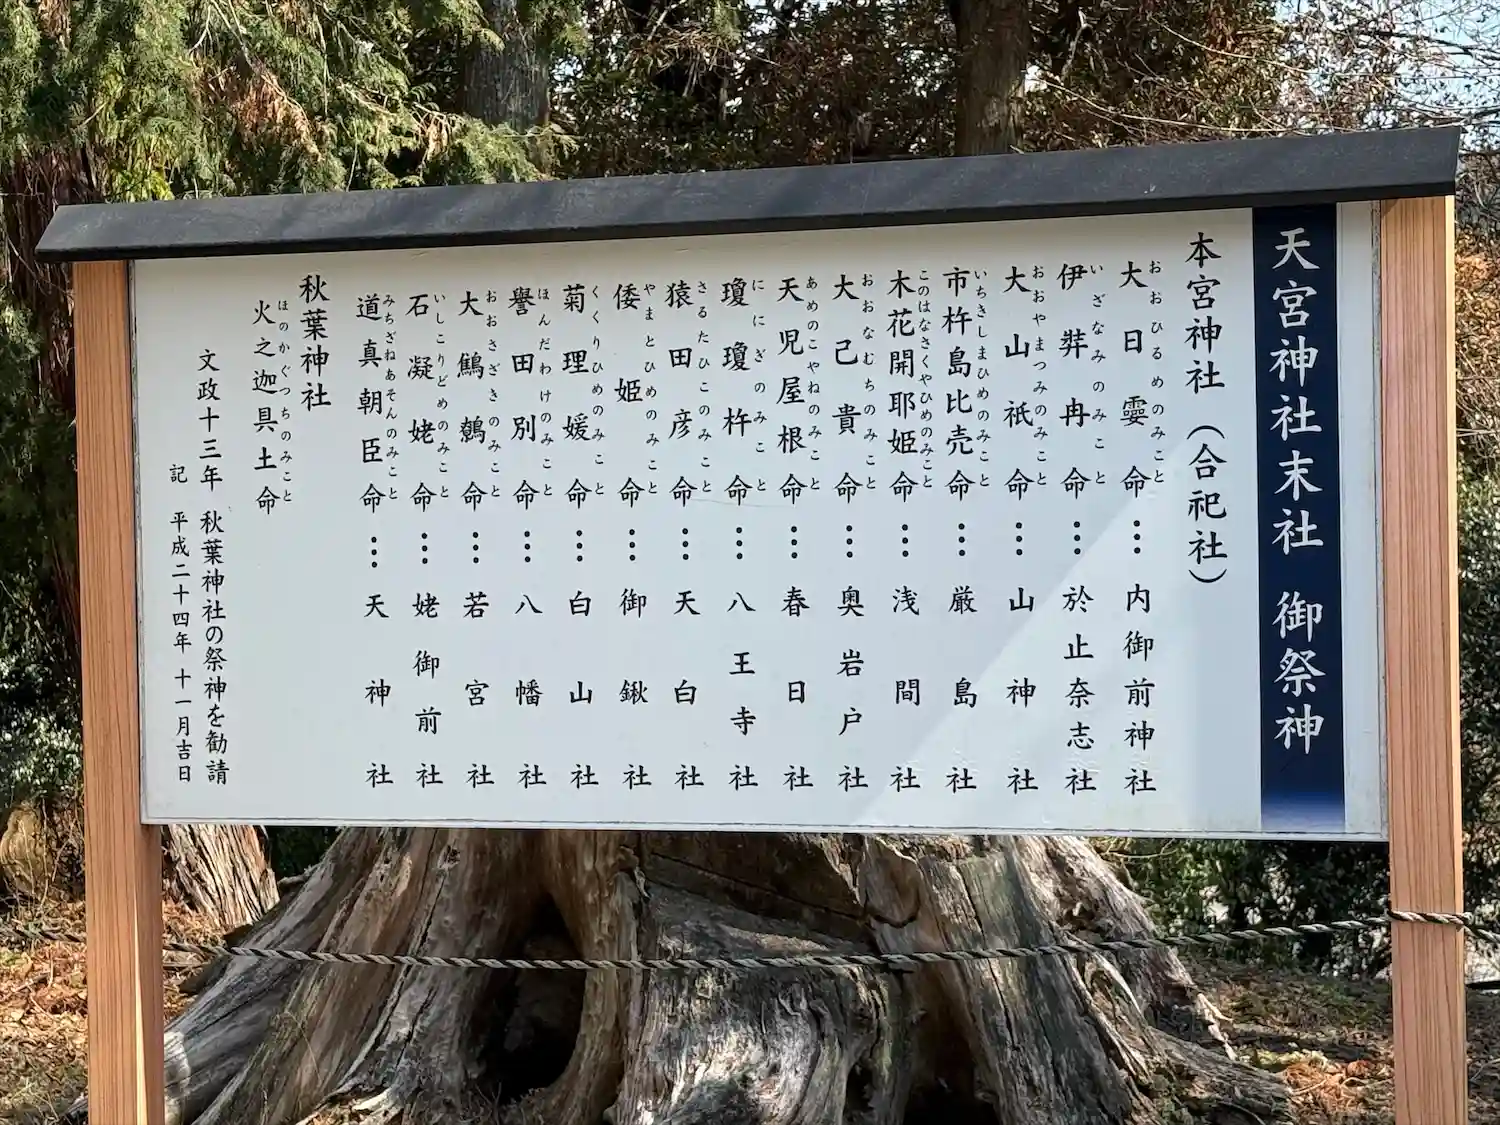 天宮神社末社 御祭神
本宮神社（合祀社）
大日孁命…内御前神社
おおひるめのみこと
伊弉冉命…於止奈志社
いざなみのみこと
大山祇命…山神社
おおやまつみのみこと
市杵島比売命…厳島社
いちきしまひめのみこと
木花開耶姫命…浅間社
このはなさくやひめのみこと
大己貴命…奥岩戸社
おおなむちのみこと
天児屋根命…春日社
あめのこやねのみこと
瓊瓊杵命…八王寺社
ににぎのみこと
猿田彦命…天白社
さるたひこのみこと
倭姫命…御鍬社
やまとひめのみこと
菊理媛命…白山社
くくりひめのみこと
譽田別命…八幡社
ほんだわけのみこと
大鷦鷯命…若宮社
おおさざきのみこと
石凝姥命…姥御前社
いしこりどめのみこと
道真朝臣命…天神社
みちざねあそんのみこと
秋葉神社
火之迦具土命
ほのかぐつちのみこと
文政十三年 秋葉神社の祭神を勧請
記 平成二十四年 十一月吉日